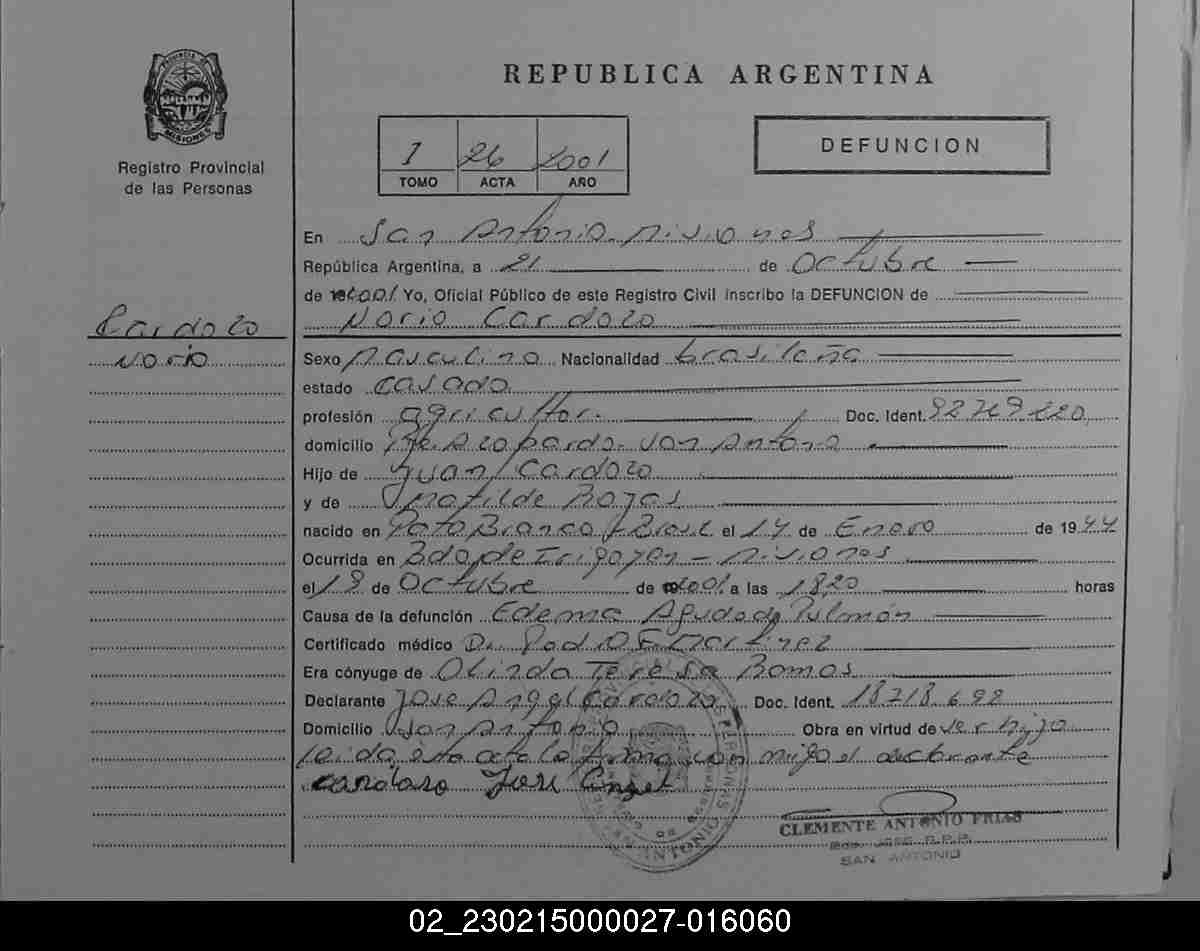 REPUBLICA ARGENTINA
PROVINCIA DE
MISIONES
Registro Provincial
de las Personas
1 26 2001
TOMO ACTA AÑO
DEFUNCION
En San Antonio Misiones
República Argentina, a 21 de Octubre
de 2001 Yo, Oficial Público de este Registro Civil inscribo la DEFUNCION de
Cardozo
Norio Cardozo
Norio
Sexo Masculino Nacionalidad brasileña
estado casado
profesión agricultor. Doc. Ident.
domicilio Pje. Azopardo San Antonio
Hijo de Juan Cardozo
y de Matilde Rozas
nacido en Pato Branco Brasil el 14 de Enero de 1944
Ocurrida en Bdo de Irigoyen - Misiones
el 19 de Octubre de 2001 a las 18,20 horas
Causa de la defunción Edema Agudo de Pulmón
Certificado médico Dr. Martinez
Era cónyuge de Olinda Teresa Ramos
Declarante Jose Angel Cardozo Doc. Ident. 18.718.698
Domicilio San Antonio Obra en virtud de ser hijo
leida esta acta la firma con migo el declarante
cardozo José Angel
CLEMENTE ANTONIO FRIAS
JEFE R.P.P.
SAN ANTONIO
02_230215000027-016060